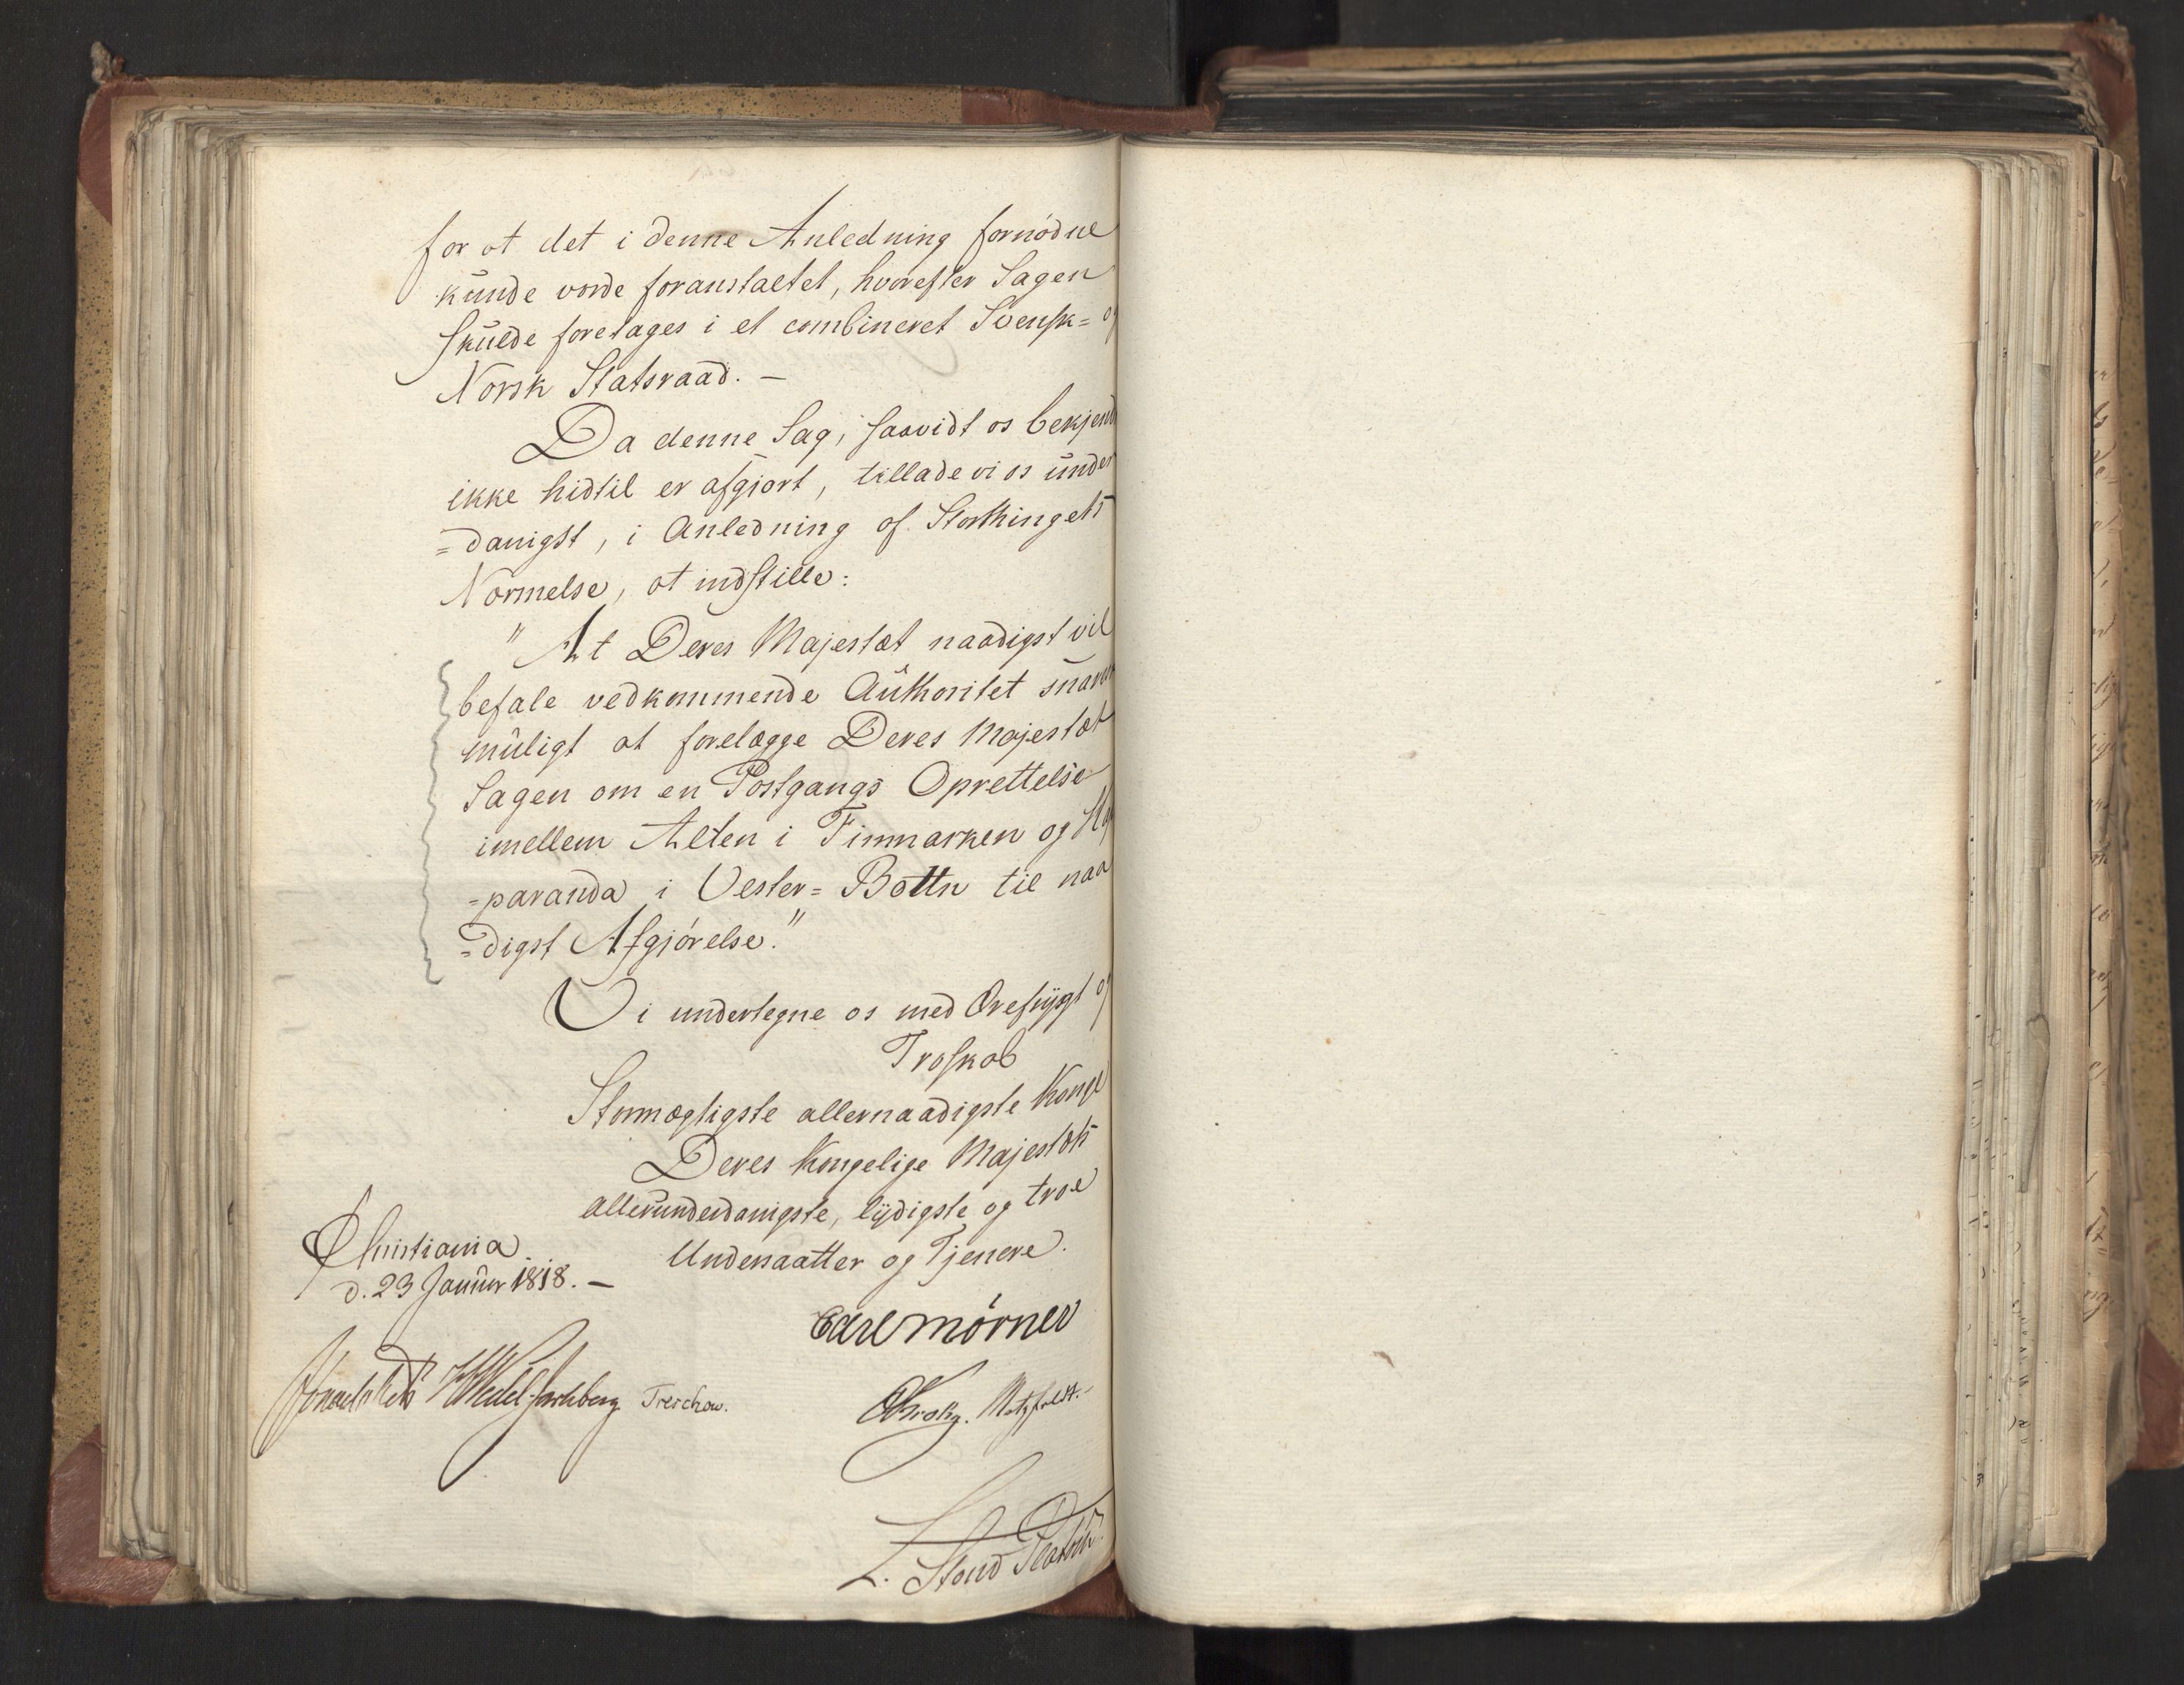 for at det i denne Anledning fornødne
kunde vorde foranstaltet, hvorefter Sagen
skulde foretages i et combineret Svensk= og
Norsk Statsraad. —
Da denne Sag, saavidt os bekjend
ikke hidtil er afgjort, tillade vi os under
=danigst, i Anledning af Storthingets
Nørmelse, at indstille:
"At Deres Majestæt naadigst vil
befale vedkommende Authoritet snarest
muligt at forelægge Deres Majestæt
Sagen om en Postgangs Oprettelse
imellem Alten i Finmarken og Ha
=paranda i Vester= Bottn til naa
=digst Afgjørelse."
Vi undertegne os med Ærefrygt og
Troskab
Stormægtigste allernaadigste Konge
Deres Kongelige Majestæts
allerunderdanigste, lydigste og troe
Undersaatter og Tjenere.
Christiania
d. 23 Januar 1818. —
Carl Mørner
Wedel Jarlsberg Treschow.
Krohg. Motzfeldt.
L. Stoud Platou